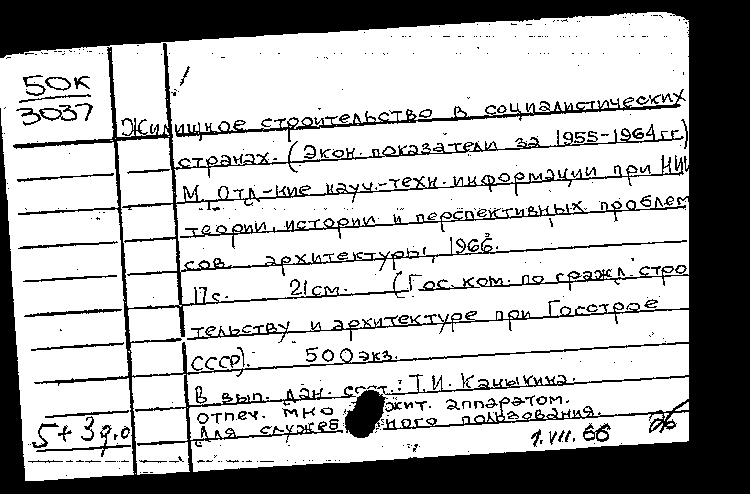 50К
3037
Жилищное строительство в социалистических
странах. (Экон. показатели за 1955-1964 гг.)
М., Отд-ние науч.-техн. информации при НИИ
теории, истории и перспективных проблем
сов. архитектуры, 1966.
17с. 21см. (Гос. ком. по гражд. строи
тельству и архитектуре при Госстрое
СССР). 500 экз.
В вып. дан. сост.: Т.И.
отпеч. мно жит. аппаратом.
Для служеб ного пользования.
5+3д.о
1.VII.66